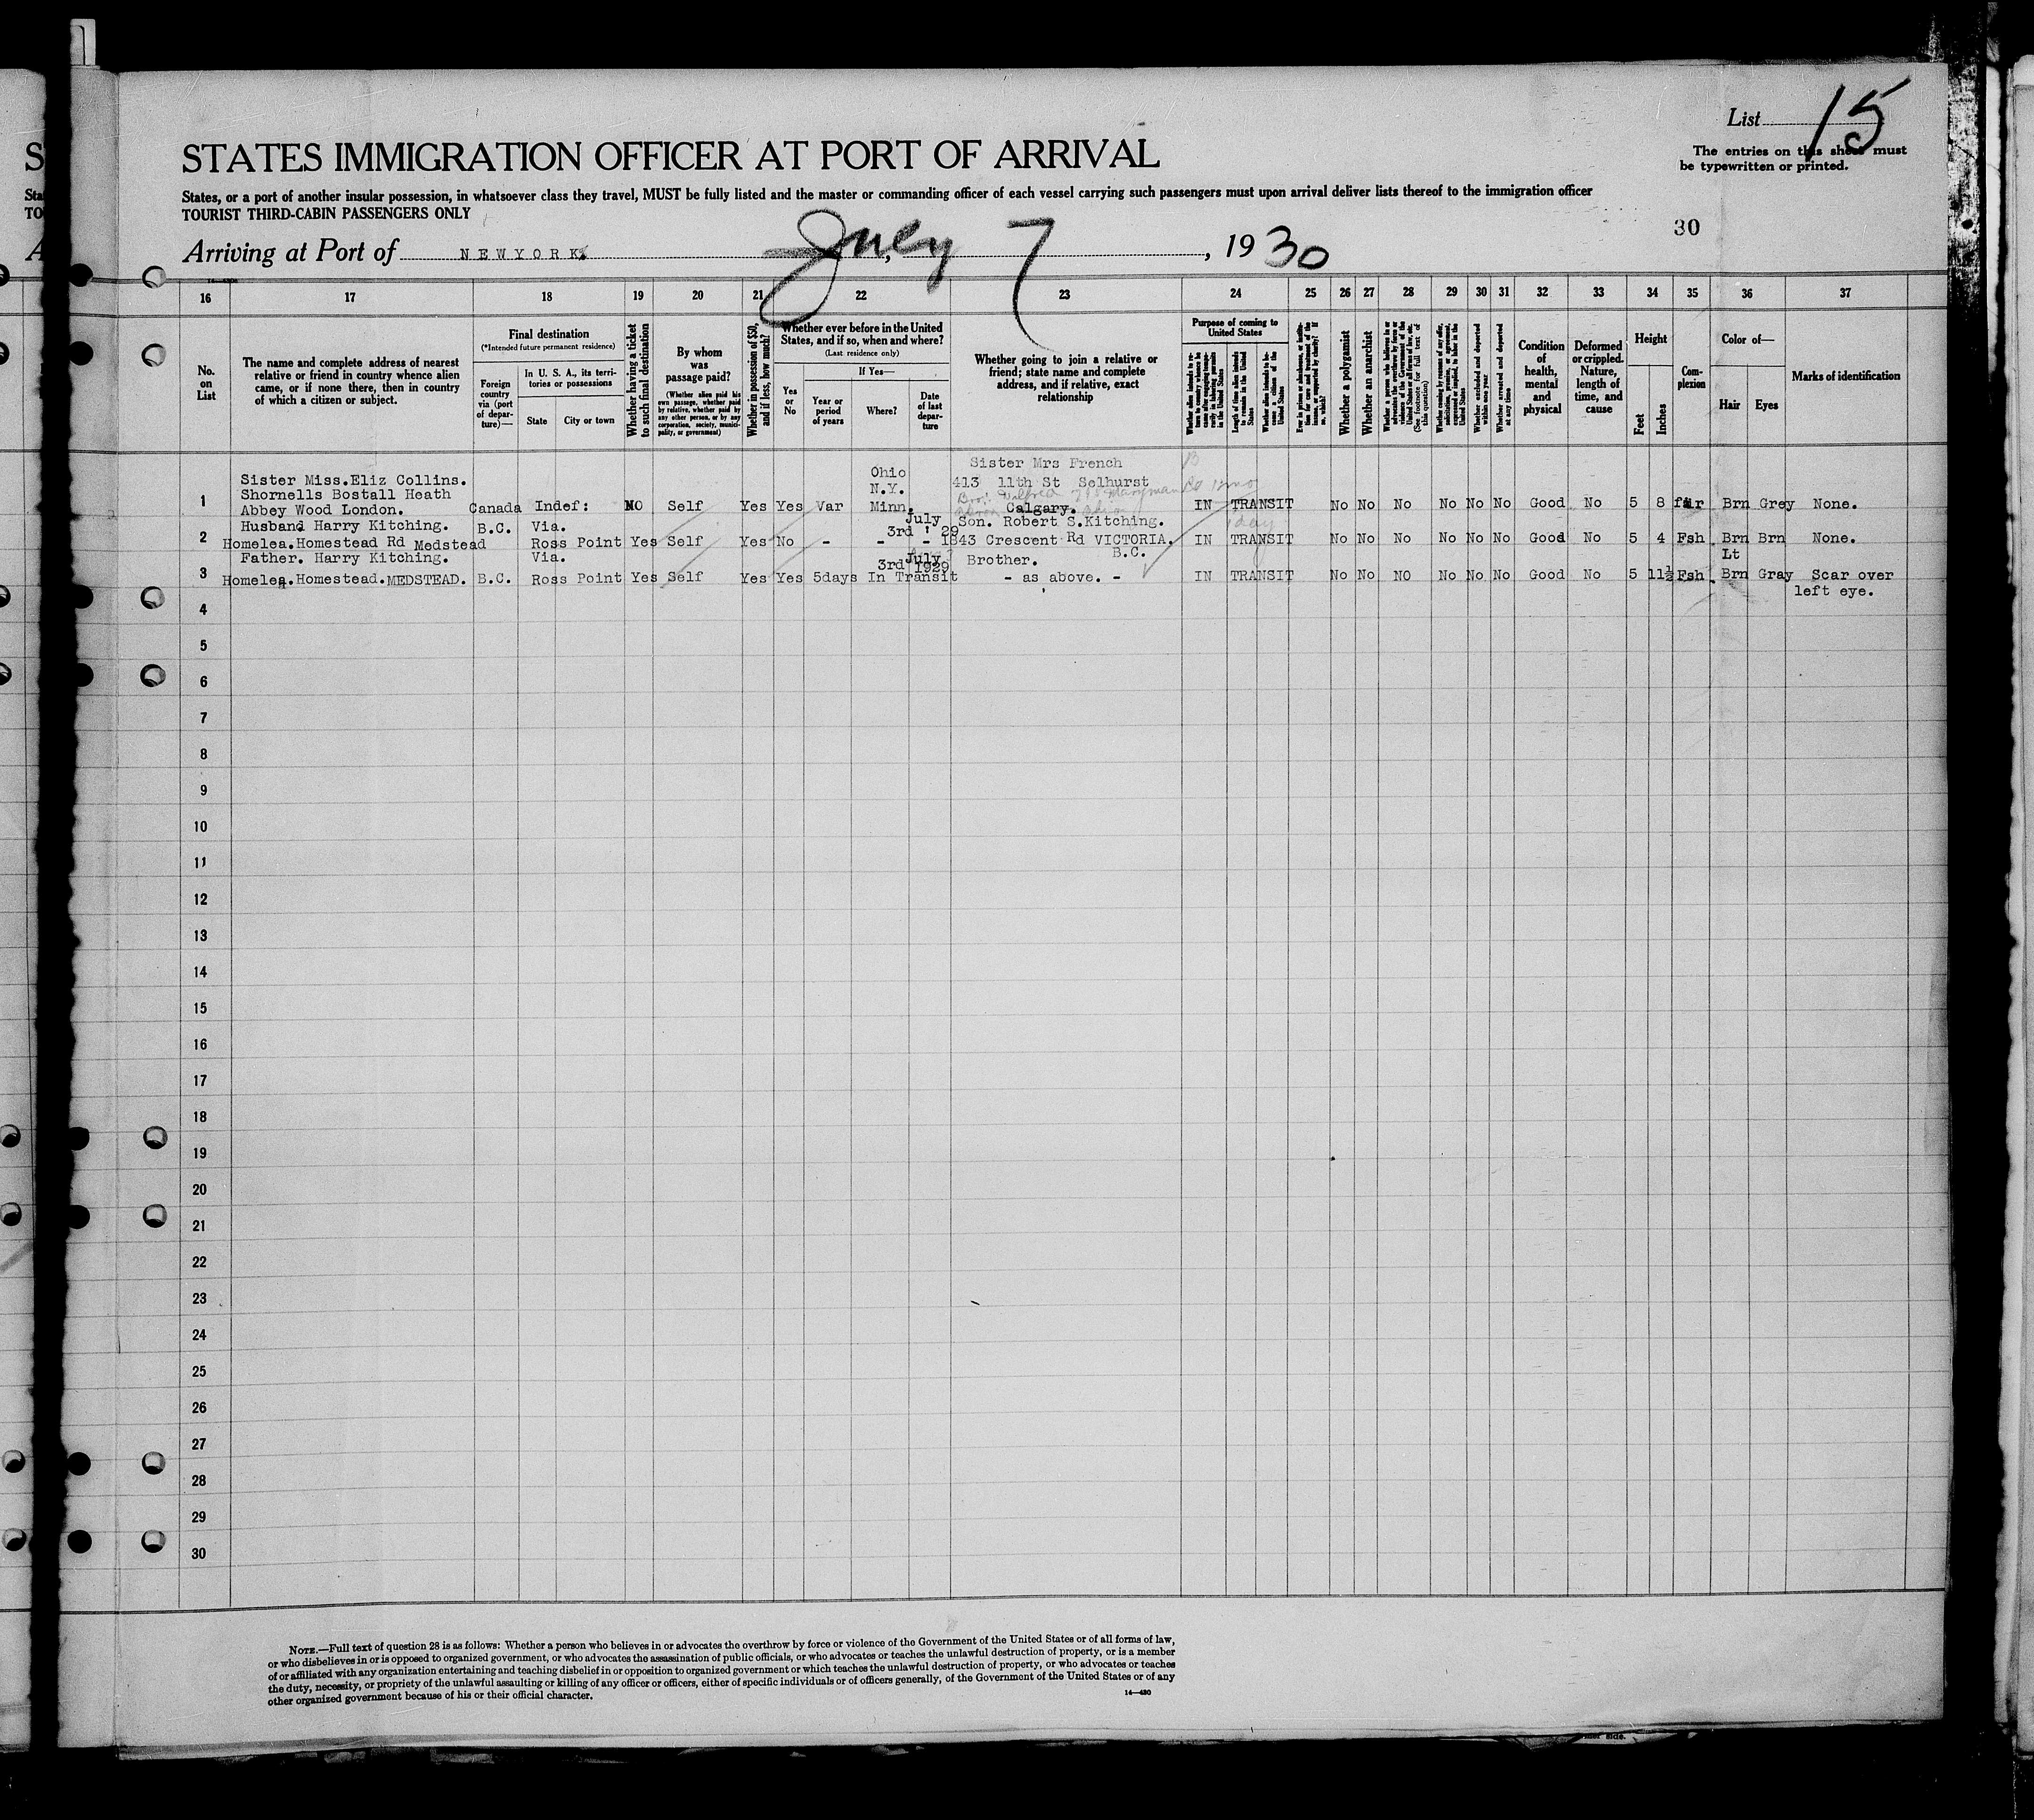 List 15
STATES IMMIGRATION OFFICER AT PORT OF ARRIVAL
The entries on this sheet must
be typewritten or printed.
States, or a port of another insular possession, in whatsoever class they travel, MUST be fully listed and the master or commanding officer of each vessel carrying such passengers must upon arrival deliver lists thereof to the immigration officer
TOURIST THIRD-CABIN PASSENGERS ONLY
30
Arriving at Port of NEWYORK, July 7, 1930
16 17 18 19 20 21 22 23 24 25 26 27 28 29 30 31 32 33 34 35 36 37
No.
on
List
The name and complete address of nearest
relative or friend in country whence alien
came, or if none there, then in country
of which a citizen or subject.
Final destination
(*Intended future permanent residence)
Foreign
country
via (port
of depar-
ture)—
In U. S. A., its terri-
tories or possessions
State City or town
Whether having a ticket
to such final destination
By whom
was
passage paid?
(Whether alien paid his
own passage, whether paid
by relative, whether paid by
any other person, or by any
corporation, society, munici-
pality, or government)
Whether in possession of $50,
and if less, how much?
Whether ever before in the United
States, and if so, when and where?
(Last residence only)
Yes
or
No
If Yes—
Year or
period
of years
Where?
Date
of last
depar-
ture
Whether going to join a relative or
friend; state name and complete
address, and if relative, exact
relationship
Purpose of coming to
United States
Length of time alien intends
to remain in the United
States
Whether a polygamist
Whether an anarchist
Whether arrested and deported
at any time
Condition
of
health,
mental
and
physical
Deformed
or crippled.
Nature,
length of
time, and
cause
Height
Feet Inches
Com-
plexion
Color of—
Hair Eyes
Marks of identification
Sister Miss.Eliz Collins.
Shornells Bostall Heath
Abbey Wood London.
1 Canada Indef: NO Self Yes Yes Var
Ohio
N.Y.
Minn.
Sister Mrs French
413 11th St Selhurst
Calgary.
IN TRANSIT No No No No No No Good No 5 8 fair Brn Grey None.
Husband Harry Kitching.
2 Homelea.Homestead Rd Medstead
B.C. Via.
Ross Point Yes Self Yes No - - -
July
3rd ' 29
Son. Robert S.Kitching.
1843 Crescent Rd VICTORIA.
B.C.
IN TRANSIT No No No No No No Good No 5 4 Fsh Brn Brn None.
Father. Harry Kitching.
3 Homelea.Homestead.MEDSTEAD. B.C.
Via.
Ross Point Yes Self Yes Yes 5days In Transit
July
3rd 1929
Brother.
- as above. -
IN TRANSIT No No NO No No No Good No 5 11½ Fsh
Lt
Brn Gray Scar over
left eye.
4
5
6
7
8
9
10
11
12
13
14
15
16
17
18
19
20
21
22
23
24
25
26
27
28
29
30
NOTE.—Full text of question 28 is as follows: Whether a person who believes in or advocates the overthrow by force or violence of the Government of the United States or of all forms of law,
or who disbelieves in or is opposed to organized government, or who advocates the assassination of public officials, or who advocates or teaches the unlawful destruction of property, or is a member
of or affiliated with any organization entertaining and teaching disbelief in or opposition to organized government or which teaches the unlawful destruction of property, or who advocates or teaches
the duty, necessity, or propriety of the unlawful assaulting or killing of any officer or officers, either of specific individuals or of officers generally, of the Government of the United States or of any
other organized government because of his or their official character.
14—430